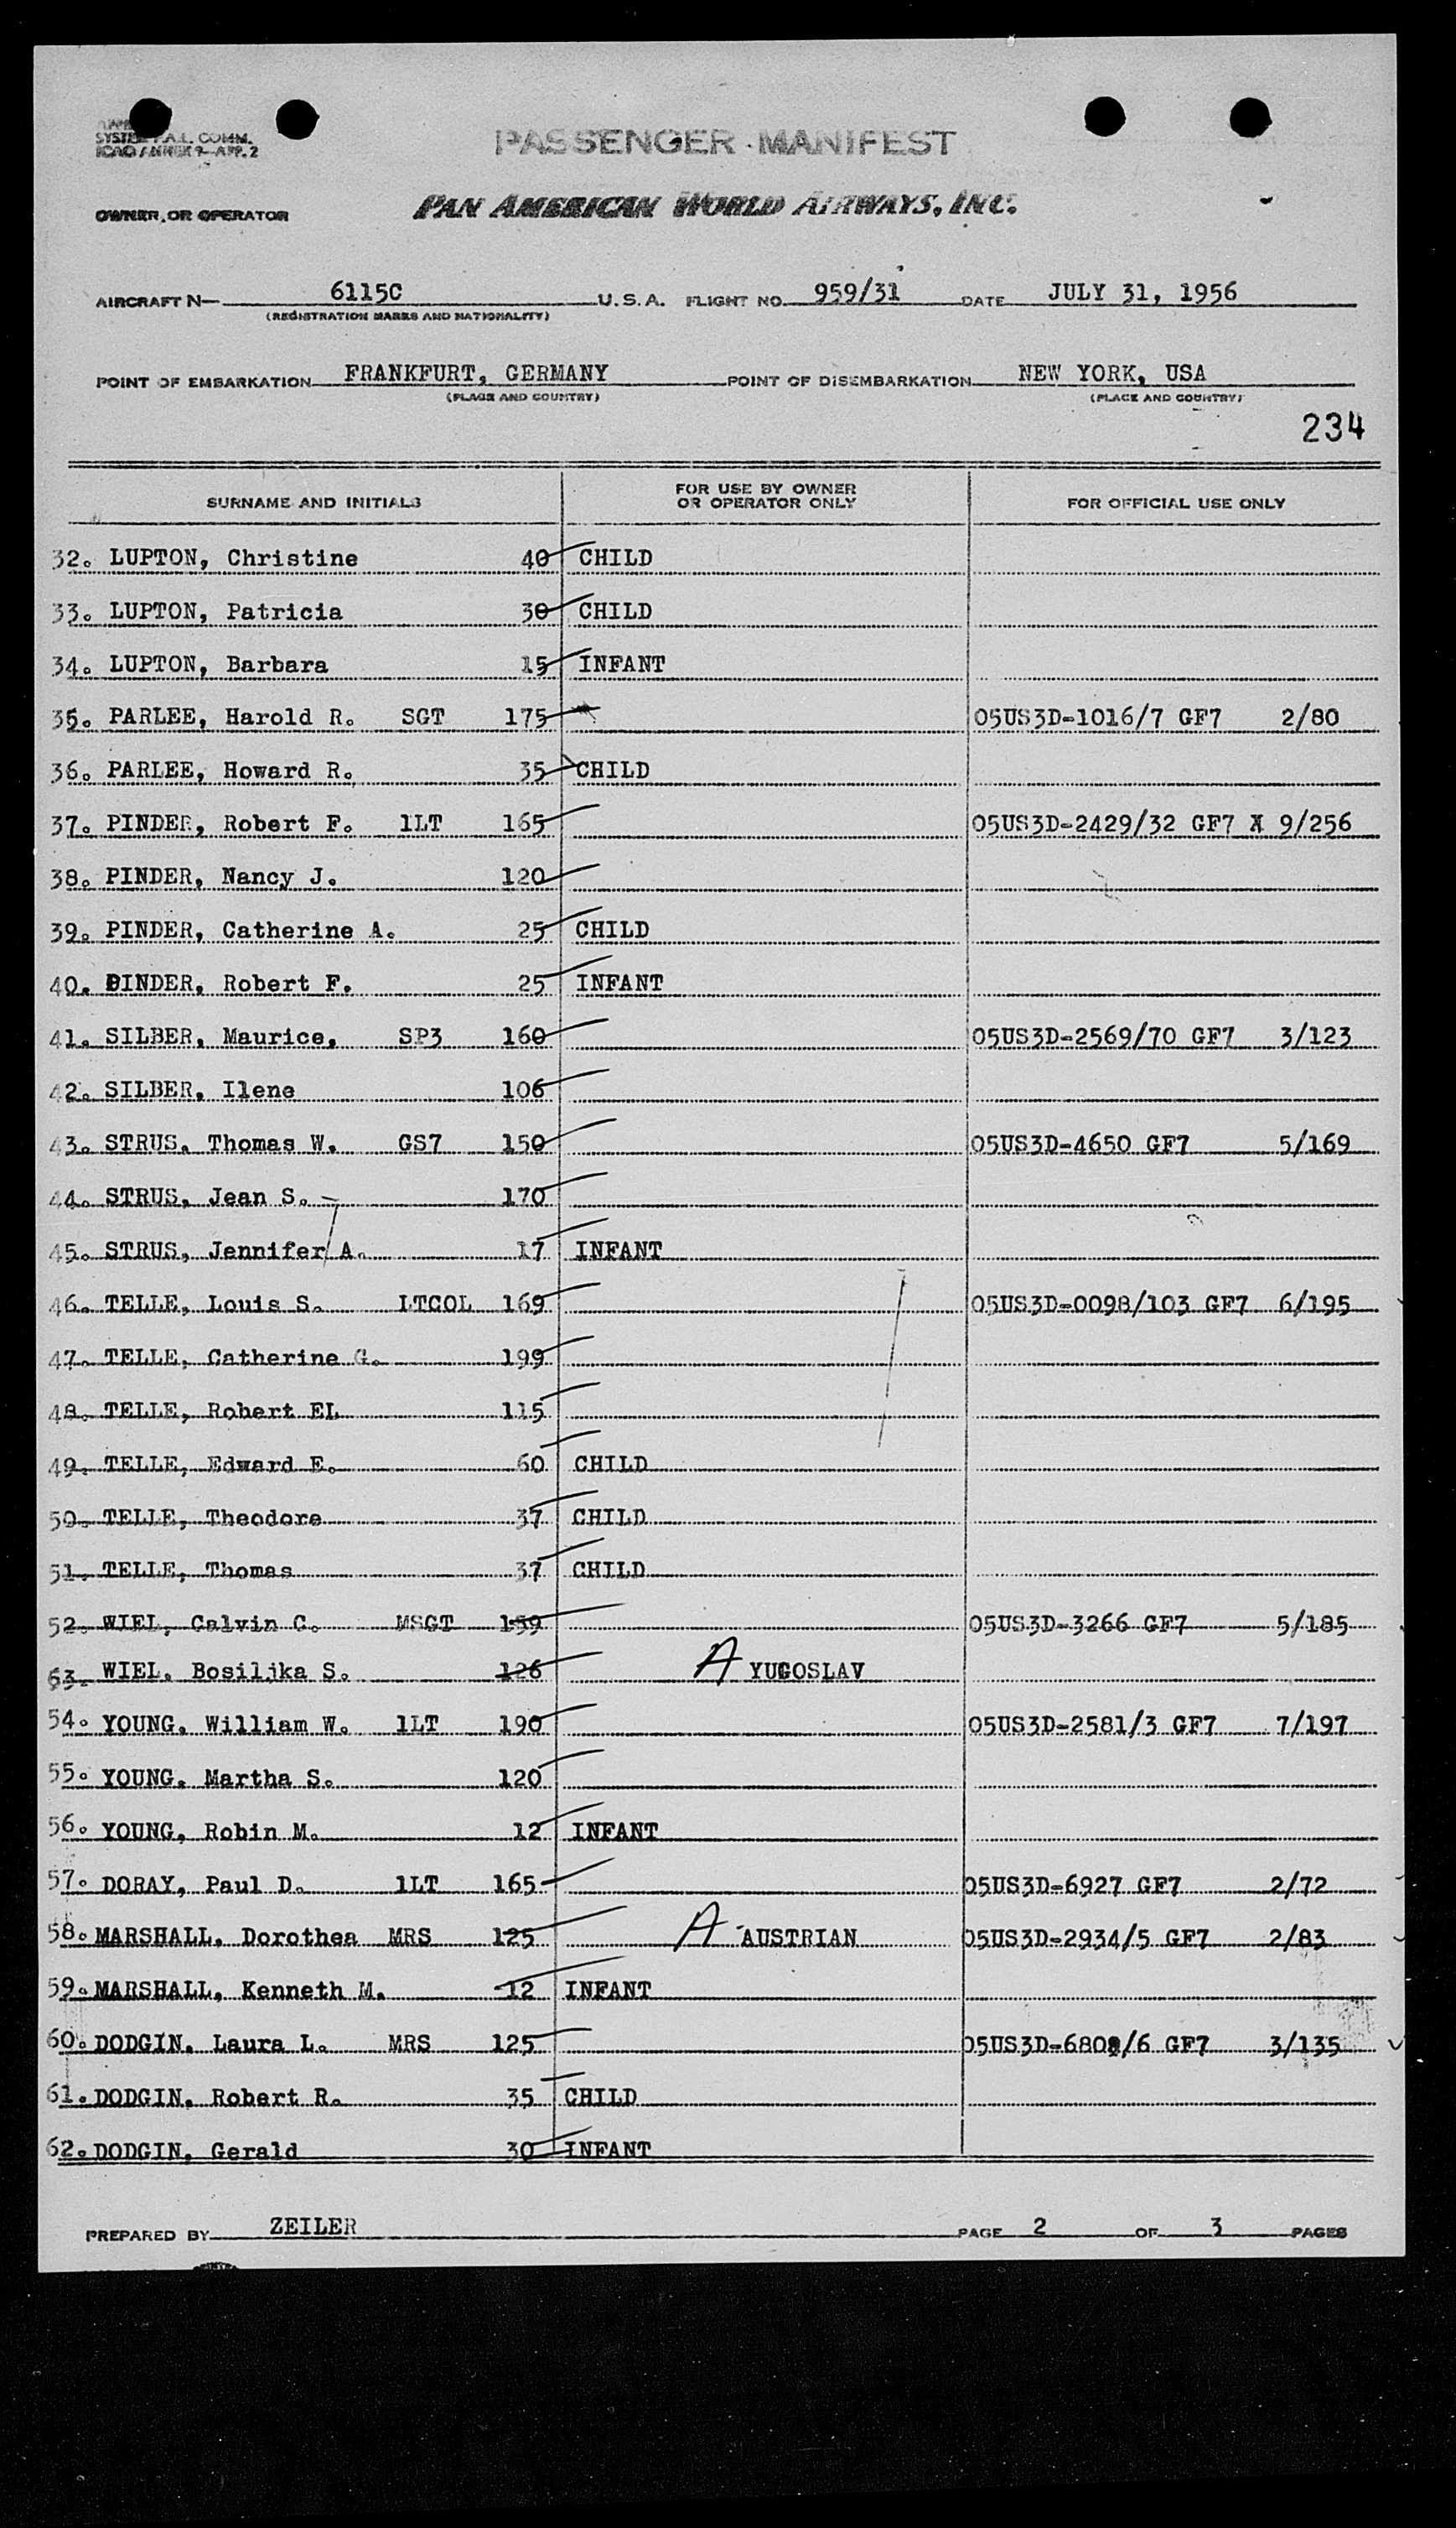 SYSTEM F.A.L. COMM.
ICAO ANNEX 9—APP. 2
PASSENGER MANIFEST
OWNER OR OPERATOR PAN AMERICAN WORLD AIRWAYS, INC.
AIRCRAFT N— 6115C U.S.A. FLIGHT NO. 959/31 DATE JULY 31, 1956
(REGISTRATION MARKS AND NATIONALITY)
POINT OF EMBARKATION FRANKFURT, GERMANY POINT OF DISEMBARKATION NEW YORK, USA
(PLACE AND COUNTRY) (PLACE AND COUNTRY)
234
SURNAME AND INITIALS FOR USE BY OWNER OR OPERATOR ONLY FOR OFFICIAL USE ONLY
32. LUPTON, Christine 40 CHILD
33. LUPTON, Patricia 30 CHILD
34. LUPTON, Barbara 15 INFANT
35. PARLEE, Harold R. SGT 175 05US3D-1016/7 GF7 2/80
36. PARLEE, Howard R. 35 CHILD
37. PINDER, Robert F. 1LT 165 05US3D-2429/32 GF7 X 9/256
38. PINDER, Nancy J. 120
39. PINDER, Catherine A. 25 CHILD
40. PINDER, Robert F. 25 INFANT
41. SILBER, Maurice, SP3 160 05US3D-2569/70 GF7 3/123
42. SILBER, Ilene 106
43. STRUS, Thomas W. GS7 150 05US3D-4650 GF7 5/169
44. STRUS, Jean S. 170
45. STRUS, Jennifer A. 17 INFANT
46. TELLE, Louis S. LTCOL 169 05US3D-0098/103 GF7 6/195
47. TELLE, Catherine G. 199
48. TELLE, Robert EL 115
49. TELLE, Edward E. 60 CHILD
50. TELLE, Theodore 37 CHILD
51. TELLE, Thomas 37 CHILD
52. WIEL, Calvin C. MSGT 159 05US3D-3266 GF7 5/185
63. WIEL, Bosiljka S. 126 A YUGOSLAV
54. YOUNG, William W. 1LT 190 05US3D-2581/3 GF7 7/197
55. YOUNG, Martha S. 120
56. YOUNG, Robin M. 12 INFANT
57. DORAY, Paul D. 1LT 165 05US3D-6927 GF7 2/72
58. MARSHALL, Dorothea MRS 125 A AUSTRIAN 05US3D-2934/5 GF7 2/83
59. MARSHALL, Kenneth M. 12 INFANT
60. DODGIN, Laura L. MRS 125 GF7 3/135
61. DODGIN, Robert R. 35 CHILD
62. DODGIN, Gerald 30 INFANT
PREPARED BY ZEILER PAGE 2 OF 3 PAGES